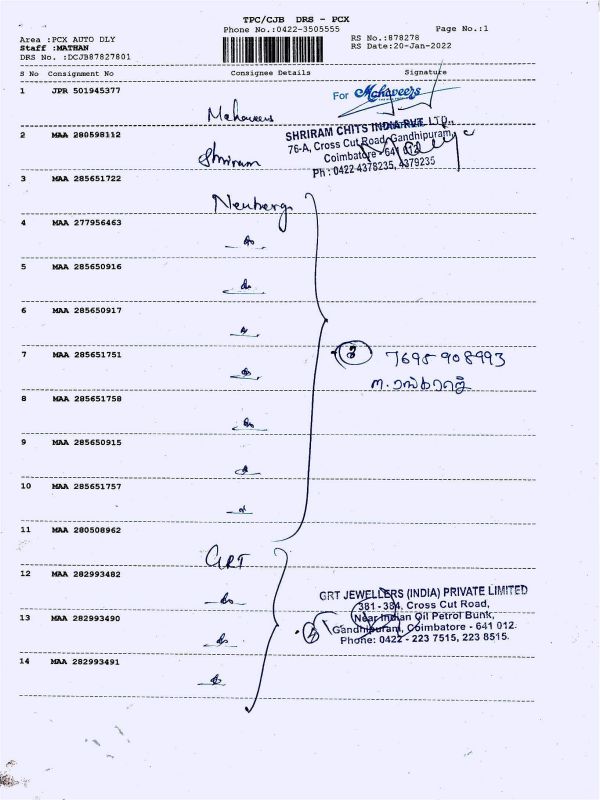 TPC/CJB DRS - PCX
Phone No.:0422-3505555
Page No.:1
Area :PCX AUTO DLY
RS No.:878278
Staff :MATHAN
RS Date:20-Jan-2022
DRS No. :DCJB87827801
S No Consignment No Consignee Details Signature
1 JPR 501945377
Mahaveers
For Mahaveers
2 MAA 280598112
Shriram
SHRIRAM CHITS INDIA PVT. LTD.,
76-A, Cross Cut Road, Gandhipuram,
Coimbatore - 641 012
Ph : 0422 4378235, 4379235
3 MAA 285651722
Neuberg
4 MAA 277956463
5 MAA 285650916
6 MAA 285650917
7 MAA 285651751
7695908993
8 MAA 285651758
9 MAA 285650915
10 MAA 285651757
11 MAA 280508962
GRT
12 MAA 282993482
GRT JEWELLERS (INDIA) PRIVATE LIMITED
381 - 384, Cross Cut Road,
Near Indian Oil Petrol Bunk,
Gandhipuram, Coimbatore - 641 012.
Phone: 0422 - 223 7515, 223 8515.
13 MAA 282993490
14 MAA 282993491